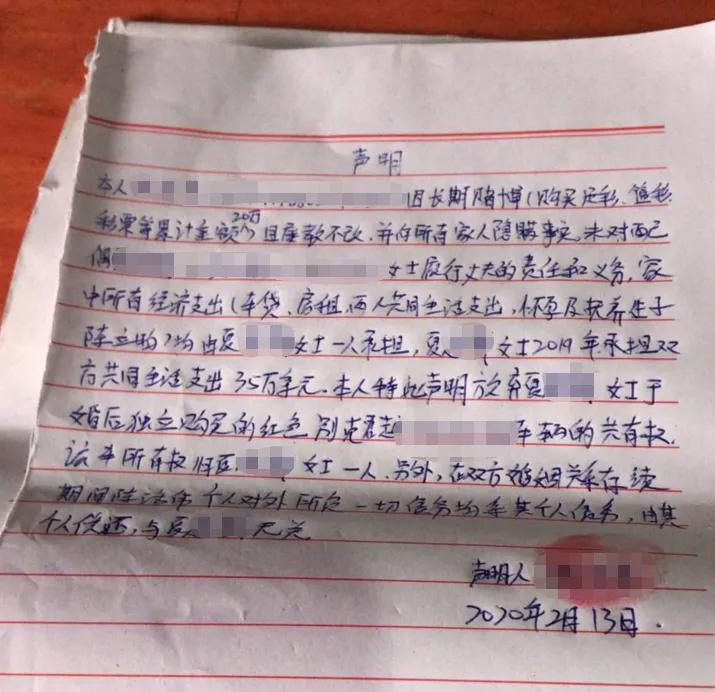 声明
本人 因长期赌博(购买足彩、
彩票等累计金额20万 且屡教不改,并向所有家人隐瞒事实,未对配
偶 女士履行丈夫的责任和义务,家
中所有经济支出(车贷、房租、两人共同生活支出、怀孕及抚养生子
陈 )均由夏 女士一人承担,夏 女士2019年承担双
方共同生活支出35万余元.本人特此声明放弃夏 女士于
婚后独立购买的红色别克君越 车辆的共有权,
该车所有权归 女士一人.另外,在双方婚姻关系存续
期间陈 个人对外所负一切债务均系其个人债务,由其
个人偿还,与夏 无关
声明人
2020年2月13日.